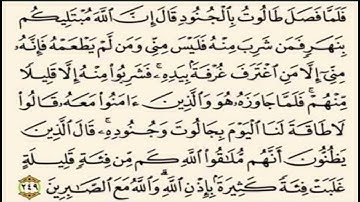 فَلَمَّا فَصَلَ طَالُوتُ بِالْجُنُودِ قَالَ إِنَّ اللَّهَ مُبْتَلِيكُم
بِنَهَرٍ فَمَن شَرِبَ مِنْهُ فَلَيْسَ مِنِّي وَمَن لَّمْ يَطْعَمْهُ فَإِنَّهُ
مِنِّي إِلَّا مَنِ اغْتَرَفَ غُرْفَةً بِيَدِهِ ۚ فَشَرِبُوا مِنْهُ إِلَّا قَلِيلًا
مِّنْهُمْ ۚ فَلَمَّا جَاوَزَهُ هُوَ وَالَّذِينَ ءَامَنُوا مَعَهُ قَالُوا
لَا طَاقَةَ لَنَا الْيَوْمَ بِجَالُوتَ وَجُنُودِهِ ۚ قَالَ الَّذِينَ
يَظُنُّونَ أَنَّهُم مُّلَاقُوا اللَّهِ كَم مِّن فِئَةٍ قَلِيلَةٍ
غَلَبَتْ فِئَةً كَثِيرَةً بِإِذْنِ اللَّهِ ۗ وَاللَّهُ مَعَ الصَّابِرِينَ ٢٤٩